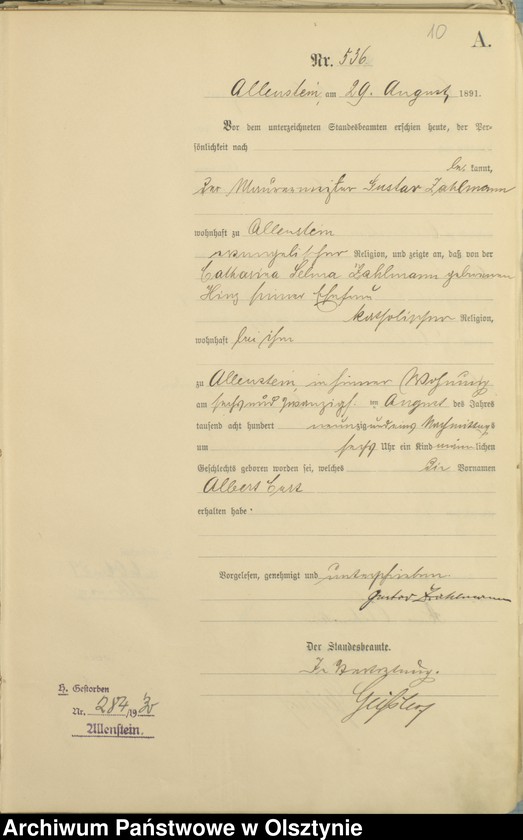 10
A.
Nr. 536.
Allenstein, am 29. August 1891.
Vor dem unterzeichneten Standesbeamten erschien heute, der Per-
sönlichkeit nach
be kannt,
der Maurermeister Gustav Zahlmann
wohnhaft zu Allenstein
evangelischer Religion, und zeigte an, daß von der
Catharina Selma Zahlmann geborenen
Hinz seiner Ehefrau
katholischer Religion,
wohnhaft bei ihm
zu Allenstein, in seiner Wohnung
am sechsundzwanzigsten August des Jahres
tausend acht hundert neunzig und eins Nachmittags
um sechs Uhr ein Kind männlichen
Geschlechts geboren worden sei, welches die Vornamen
Albert
erhalten habe
Vorgelesen, genehmigt und unterschrieben
Gustav Zahlmann
Der Standesbeamte.
In Vertretung.
H. Gestorben
Nr. 284/19
Allenstein.
Archiwum Państwowe w Olsztynie